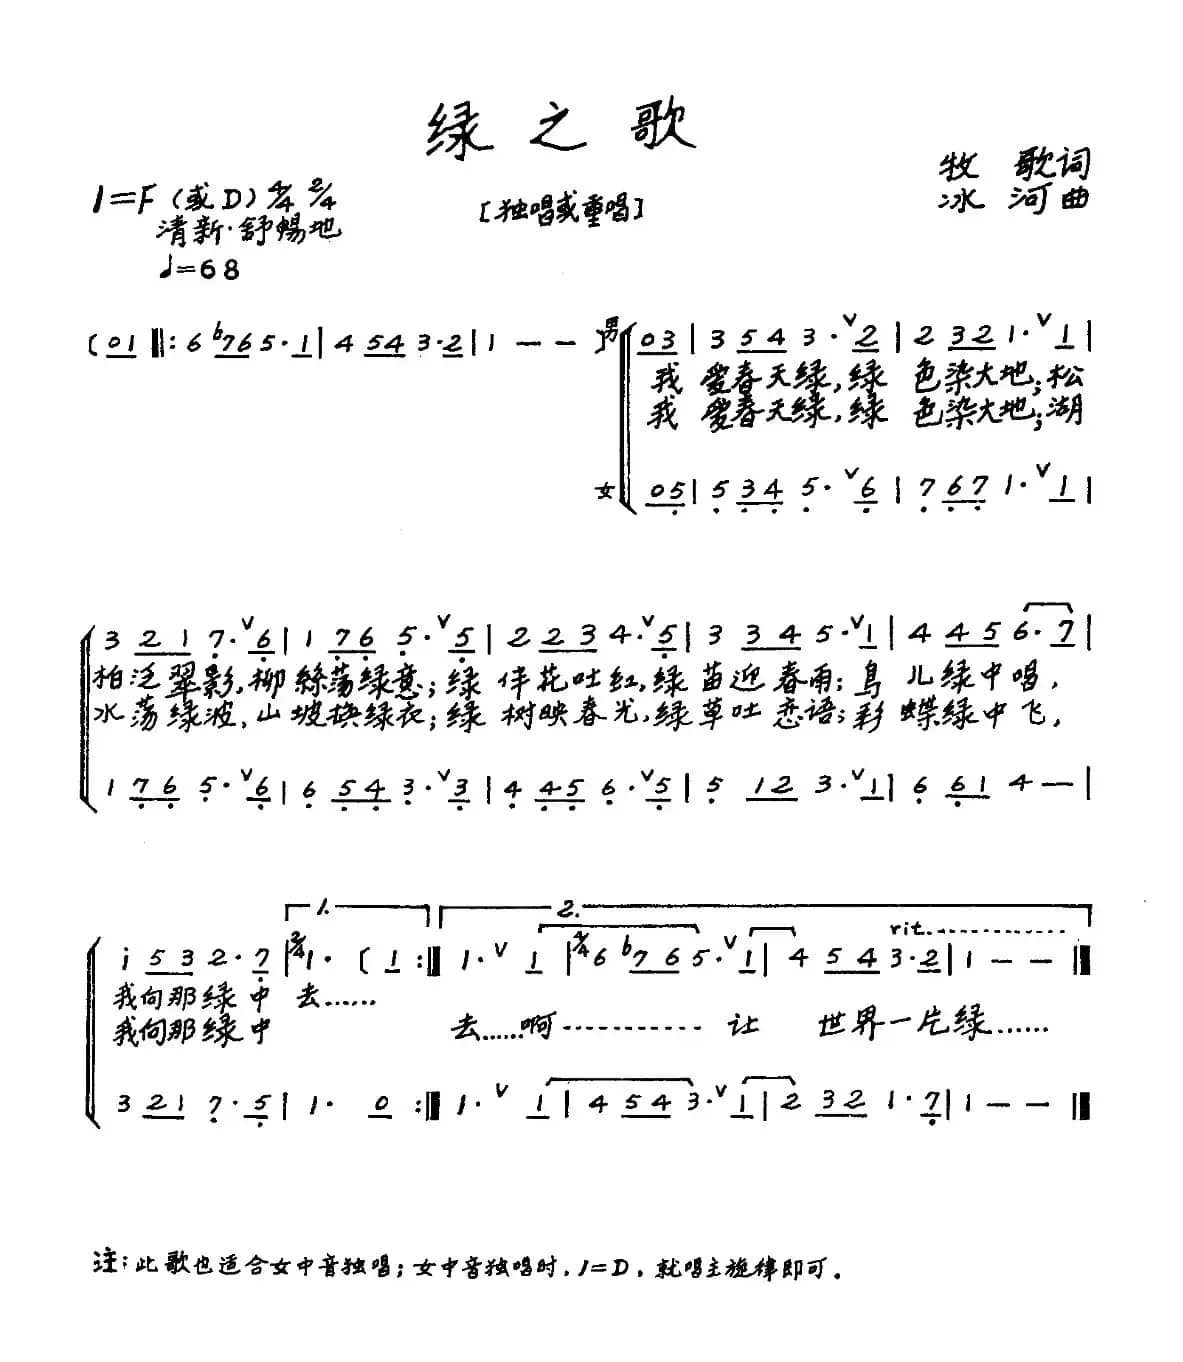 绿之歌
牧 歌词
冰 河曲
1=F（或D）4/4 2/4
[独唱或重唱]
清新·舒畅地
♩=68
( 01 ‖: 6 ♭765·1 | 4 543·2 | 1 - - )
男 03 | 3 543·ᵛ2 | 2 321·ᵛ1 |
我 爱春天绿,绿 色染大地;松
我 爱春天绿,绿 色染大地;湖
女 05 | 5 345·ᵛ6 | 7 671·ᵛ1 |
3 217·ᵛ6 | 1 765·ᵛ5 | 2 234·ᵛ5 | 3 345·ᵛ1 | 4 456·7 |
柏泛翠影,柳絲荡绿意;绿 伴花吐红,绿苗迎春雨;鸟 儿绿中唱,
水荡绿波,山坡换绿衣;绿 树映春光,绿草吐恋语;彩 蝶绿中飞,
1 765·ᵛ6 | 6 543·ᵛ3 | 4 456·ᵛ5 | 5 123·ᵛ1 | 6 614- |
1. 2. rit.
i 532·7 | 2/4 1·( 1 :‖ 1·ᵛ 1 | 4/4 6 ♭765·ᵛ1 | 4 543·2 | 1 - - ‖
我向那绿中 去……
我向那绿中 去……啊----------- 让 世界一片绿……
3 217·5 | 1· 0 :‖ 1·ᵛ 1 | 4 543·ᵛ1 | 2 321·7 | 1 - - ‖
注:此歌也适合女中音独唱;女中音独唱时,1=D,就唱主旋律即可。